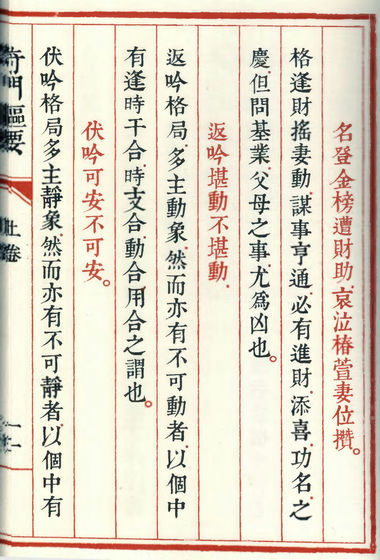 名登金榜遭財助。哀泣椿萱妻位攢。
格逢財搖妻動。謀事亨通。必有進財添喜。功名之
慶。但問基業。父母之事。尤爲凶也。
返吟堪動不堪動。
返吟格局。多主動象。然而亦有不可動者。以個中
有逢時干合。時支合。動合用合之謂也。
伏吟可安不可安。
伏吟格局。多主靜象。然而亦有不可靜者。以個中有
奇門樞要
上卷